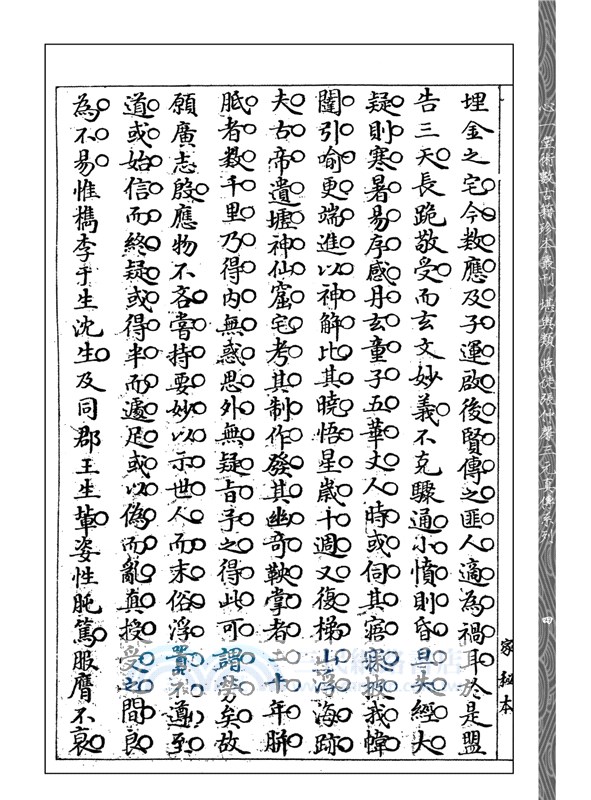 心一堂術數古籍珍本叢刊 堪輿類 蔣徒張仲馨三元真傳系列 四
家秘本
埋金之宅今數應及子運啟後賢傳之匪人適為禍耳於是盟
告三天長跪敬受而玄文妙義不克驟通小憤則昏旦失經大
疑則寒暑易序感丹玄童子五華丈人時或伺其寤寐披我幃
闥引喻更端進以神解比其曉悟星歲十週又復梯山浮海跡
夫古帝遺壇神仙窟宅考其制作發其幽奇鞅掌者二十年胼
胝者數千里乃得內無惑思外無疑旨予之得此可謂勞矣故
願廣志慇應物不吝嘗持要妙以示世人而末俗浮囂不遵至
道或始信而終疑或得半而遽足或以偽而亂真授受之間良
為不易惟檇李于生沈生及同郡王生輩姿性肫篤服膺不衰